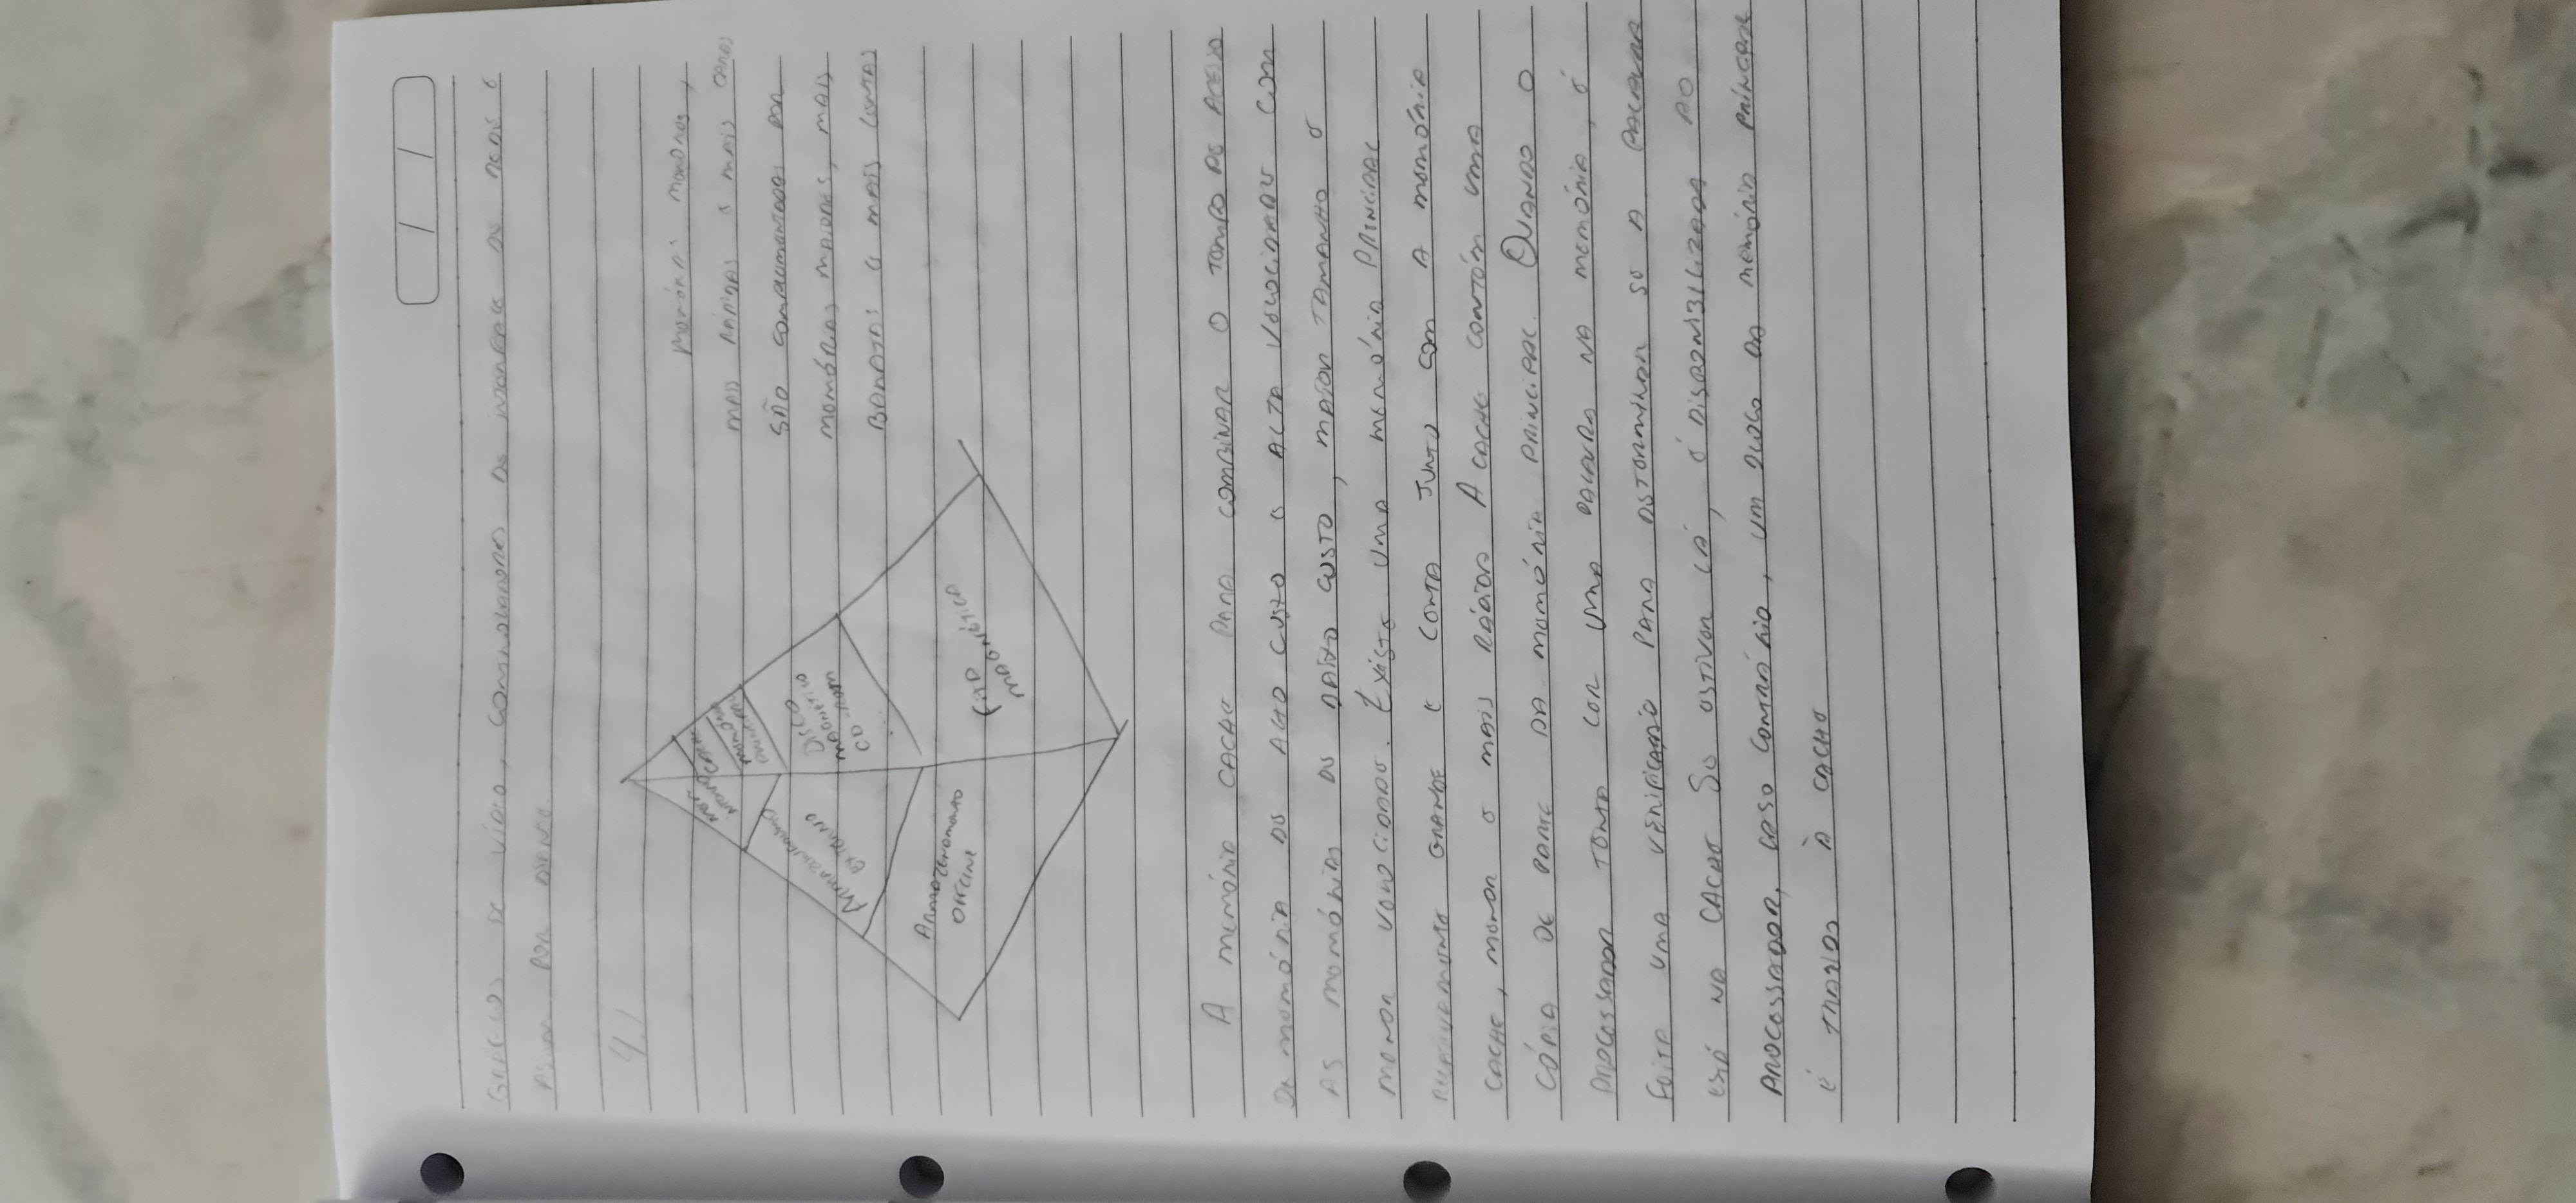 GRÁFICOS DE VÍDEO, CONTROLADORES DE INTERFACE DE REDE E
ASSIM POR DIANTE.
4.1
MEM. INTERNO
CACHE
MEMÓRIA PRINCIPAL
ARMAZENAMENTO EXTERNO
DISCO
MAGNÉTICO
CD-ROM
...
ARMAZENAMENTO
OFFLINE
FITA
MAGNÉTICA
MEMÓRIAS MENORES,
MAIS RÁPIDAS E MAIS CARAS
SÃO COMPLEMENTADAS POR
MEMÓRIAS MAIORES, MAIS
BARATAS E MAIS LENTAS
A MEMÓRIA CACHE PARA COMBINAR O TEMPO DE ACESSO
DE MEMÓRIA DE ALTO CUSTO E ALTA VELOCIDADE COM
AS MEMÓRIAS DE BAIXO CUSTO, MAIOR TAMANHO E
MENOR VELOCIDADE. EXISTE UMA MEMÓRIA PRINCIPAL
GRANDE E LENTA JUNTO COM A MEMÓRIA
CACHE, MENOR E MAIS RÁPIDA A CACHE CONTÉM UMA
CÓPIA DE PARTE DA MEMÓRIA PRINCIPAL. QUANDO O
PROCESSADOR TENTA LER UMA PALAVRA NA MEMÓRIA, É
FEITA UMA VERIFICAÇÃO PARA DETERMINAR SE A PALAVRA
ESTÁ NA CACHE SE ESTIVER LÁ, É DISPONIBILIZADA AO
PROCESSADOR, CASO CONTRÁRIO, UM BLOCO DA MEMÓRIA PRINCIPAL
É TRAZIDO À CACHE